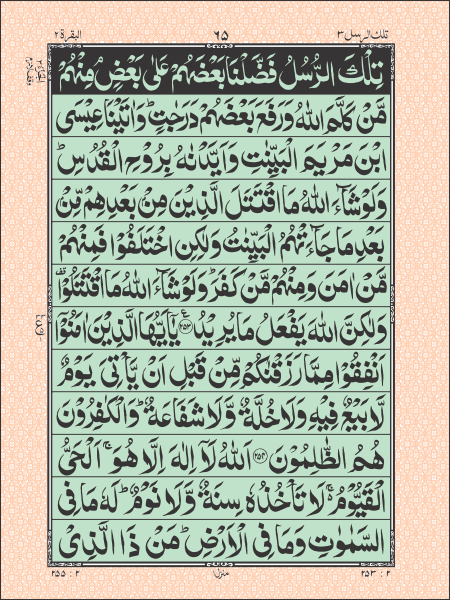 تلك الرسل ٣ ٦٥ البقرة ٢
تِلْكَ الرُّسُلُ فَضَّلْنَا بَعْضَهُمْ عَلٰى بَعْضٍ مِنْهُمْ
مَّنْ كَلَّمَ اللّٰهُ وَرَفَعَ بَعْضَهُمْ دَرَجٰتٍ ؕ وَاٰتَيْنَا عِيْسَى
ابْنَ مَرْيَمَ الْبَيِّنٰتِ وَاَيَّدْنٰهُ بِرُوْحِ الْقُدُسِ ؕ
وَلَوْ شَآءَ اللّٰهُ مَا اقْتَتَلَ الَّذِيْنَ مِنْۢ بَعْدِهِمْ مِّنْۢ
بَعْدِ مَا جَآءَتْهُمُ الْبَيِّنٰتُ وَلٰكِنِ اخْتَلَفُوْا فَمِنْهُمْ
مَّنْ اٰمَنَ وَمِنْهُمْ مَّنْ كَفَرَ ؕ وَلَوْ شَآءَ اللّٰهُ مَا اقْتَتَلُوْا
وَلٰكِنَّ اللّٰهَ يَفْعَلُ مَا يُرِيْدُ ﴿٢٥٣﴾ يٰۤاَيُّهَا الَّذِيْنَ اٰمَنُوْۤا
اَنْفِقُوْا مِمَّا رَزَقْنٰكُمْ مِّنْ قَبْلِ اَنْ يَّاْتِيَ يَوْمٌ
لَّا بَيْعٌ فِيْهِ وَلَا خُلَّةٌ وَّلَا شَفَاعَةٌ ؕ وَالْكٰفِرُوْنَ
هُمُ الظّٰلِمُوْنَ ﴿٢٥٤﴾ اَللّٰهُ لَاۤ اِلٰهَ اِلَّا هُوَ ۚ اَلْحَيُّ
الْقَيُّوْمُ ۚ لَا تَاْخُذُهٗ سِنَةٌ وَّلَا نَوْمٌ ؕ لَهٗ مَا فِى
السَّمٰوٰتِ وَمَا فِى الْاَرْضِ ؕ مَنْ ذَا الَّذِيْ
٢ : ٢٥٣ منزل ٢ : ٢٥٥